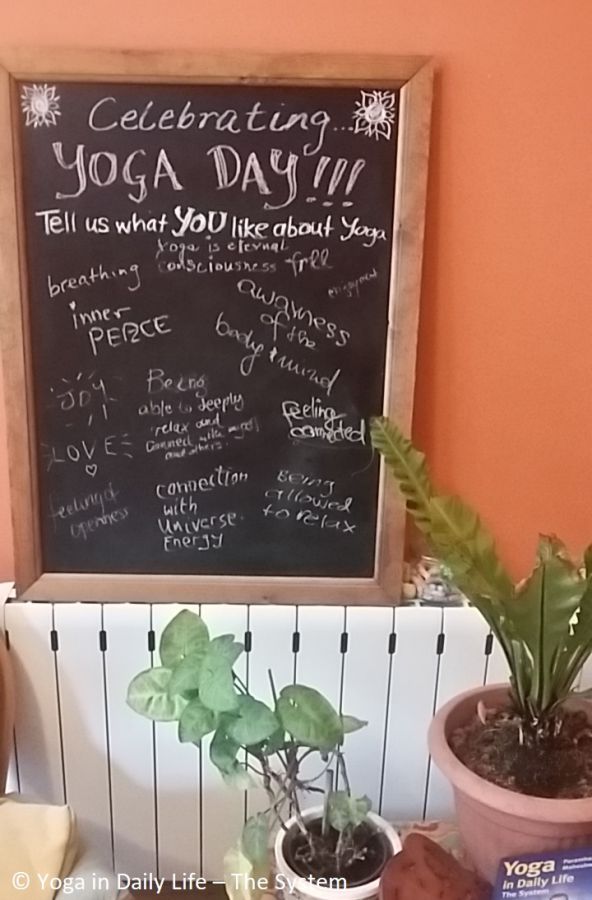 Celebrating...
YOGA DAY!!!
Tell us what YOU like about Yoga
Yoga is eternal
consciousness
free
enjoyment
breathing
inner
PEACE
awarness
of the
body & mind
JOY
LOVE
Being
able to deeply
relax and
connect with myself
and others.
feeling
connected
feeling of
openness
connection
with
Universe.
Energy
Being
allowed
to relax
Yoga
in Daily Life
The System
© Yoga in Daily Life – The System